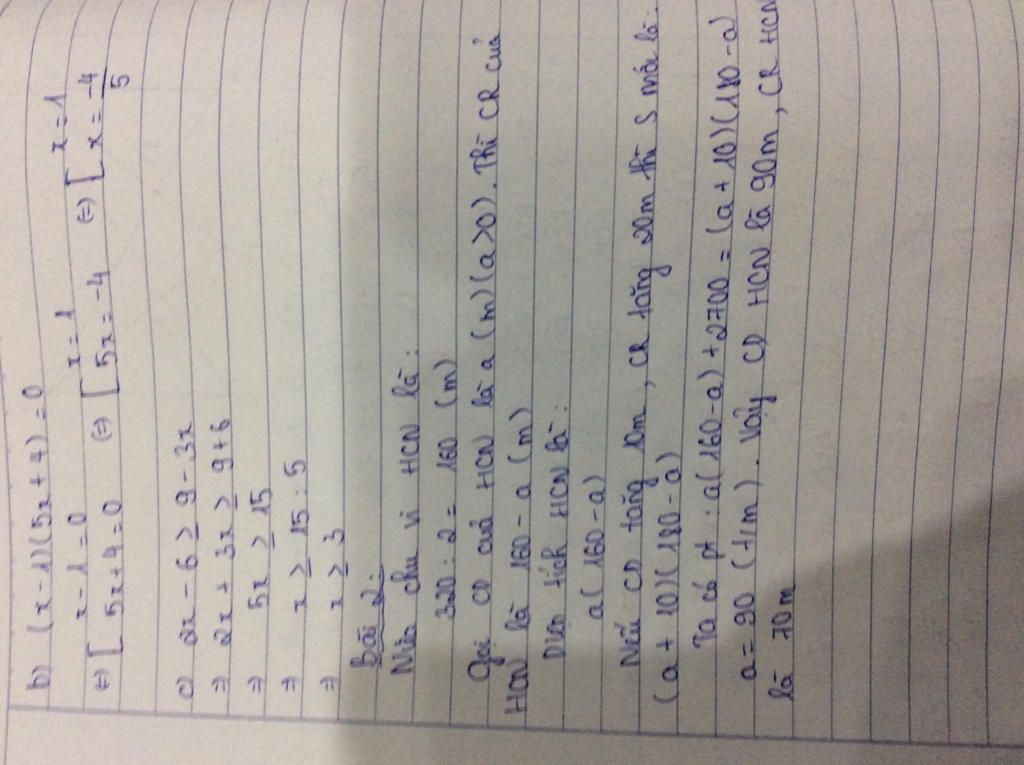 b) (x-1)(5x+4)=0
⇔ [ x-1=0 5x+4=0 ⇔ [ x=1 5x=-4 ⇔ [ x=1 x=-4/5
c) 2x-6 ≥ 9-3x
⇒ 2x+3x ≥ 9+6
⇒ 5x ≥ 15
⇒ x ≥ 15:5
⇒ x ≥ 3
Bài 2:
Nửa chu vi HCN là:
320:2 = 160 (m)
Gọi CD của HCN là a (m) (a>0). Thì CR của
HCN là 160-a (m)
Diện tích HCN là:
a(160-a)
Nếu CD tăng 10m, CR tăng 20m thì S mới là:
(a+10)(180-a)
Ta có pt: a(160-a)+2700=(a+10)(180-a)
a=90 (t/m). Vậy CD HCN là 90m, CR HCN
là 70m